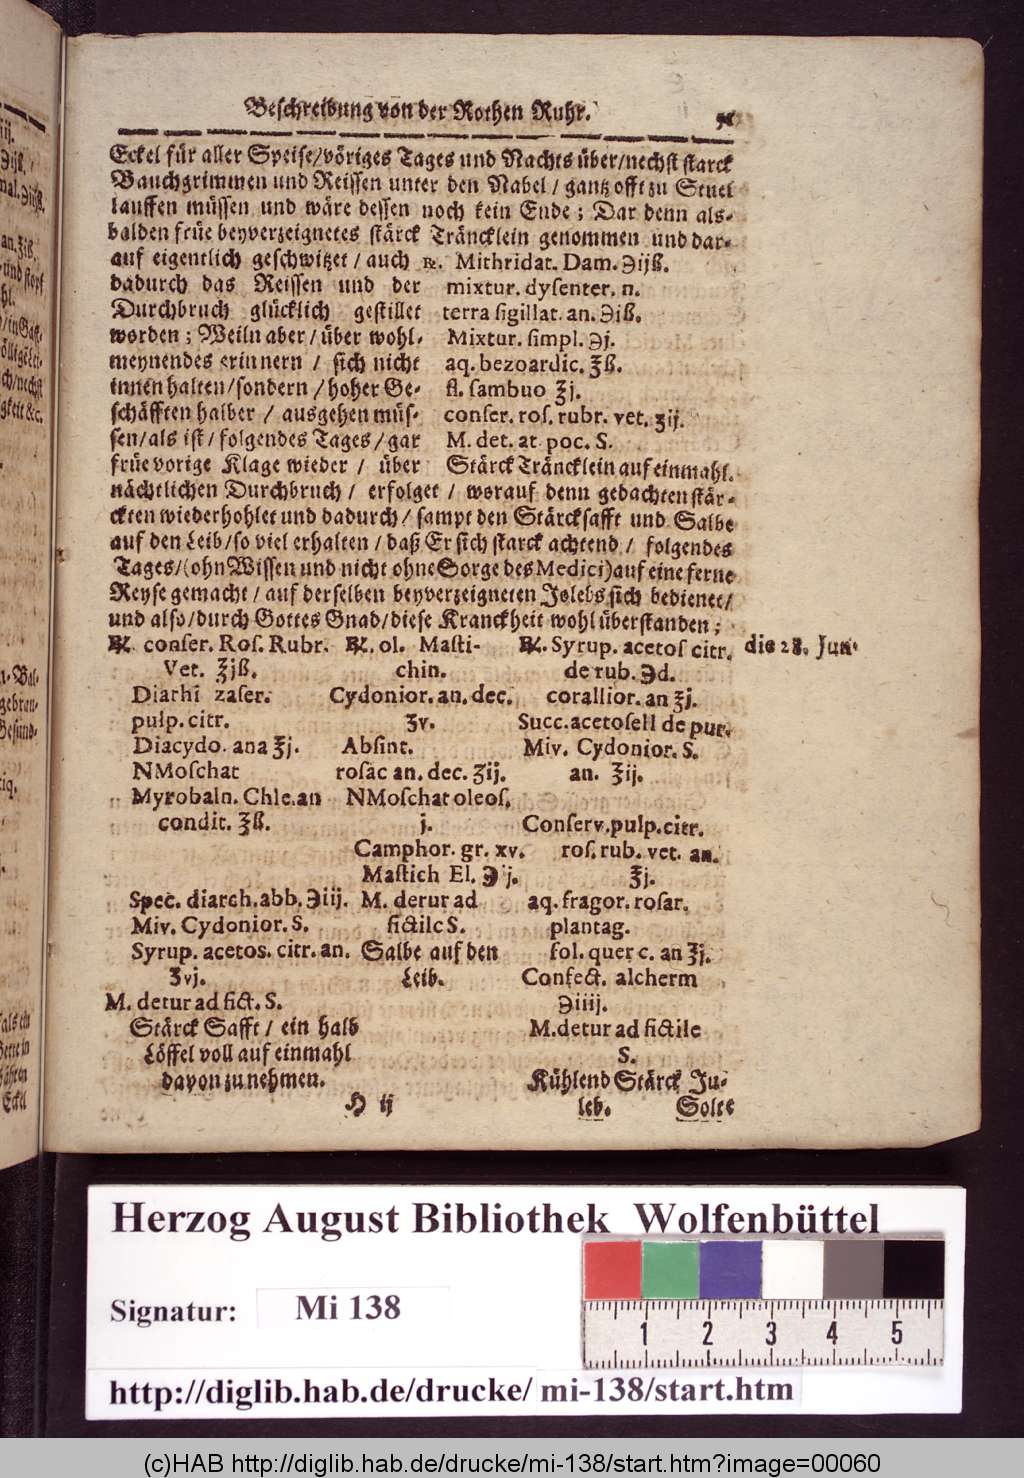 Beschreibung von der Rothen Ruhr.
Eckel für aller Speise/vöriges Tages und Nachts über/nechst starck
Bauchgrimmen und Reissen unter den Nabel/gantz offt zu Stuel
lauffen müssen und wäre dessen noch kein Ende; Dar denn als-
balden früe beyverzeignetes stärck Träncklein genommen und dar-
auf eigentlich geschwitzet/auch ℞. Mithridat. Dam. ℈ijß.
dadurch das Reissen und der mixtur. dysenter. n.
Durchbruch glücklich gestillet terra sigillat. an. ℈iß.
worden; Weiln aber/über wohl- Mixtur. simpl. ℈j.
meynendes erinnern / sich nicht aq. bezoardic. ʒß.
innen halten/sondern/hoher Ge- fl. sambuo ʒj.
schäfften halber / ausgehen müs- conser. ros. rubr. vet. ʒij.
sen/als ist/folgendes Tages/gar M. det. at poc. S.
früe vorige Klage wieder / über Stärck Träncklein auf einmahl.
nächtlichen Durchbruch / erfolget / worauf denn gedachten stär-
ckten wiederhohlet und dadurch/sampt den Stärcksafft und Salbe
auf den Leib/so viel erhalten/daß Er sich starck achtend/ folgendes
Tages/(ohn Wissen und nicht ohne Sorge des Medici) auf eine ferne
Reyse gemacht/auf derselben beyverzeigneten Julebs sich bedienet/
und also/durch Gottes Gnad/diese Kranckheit wohl überstanden;
℞. conser. Ros. Rubr. ℞. ol. Masti- ℞. Syrup. acetos citr. die 28. Jun.
Vet. ℥jß. chin. de rub. ℈d.
Diarhi zaser. Cydonior. an. dec. corallior. an ʒj.
pulp. citr. ʒv. Succ. acetosell de pur.
Diacydo. ana ʒj. Absint. Miv. Cydonior. S.
NMoschat rosac an. dec. ʒij. an. ʒij.
Myrobaln. Chle. an NMoschat oleos.
condit. ʒß. j. Conserv. pulp. citr.
Camphor. gr. xv. ros. rub. vet. an.
Mastich El. ℈j. ʒj.
Spec. diarch. abb. ℈iij. M. derur ad aq. fragor. rosar.
Miv. Cydonior. S. fictilc S. plantag.
Syrup. acetos. citr. an. Salbe auf den fol. querc. an ʒj.
ʒvj. Leib. Confect. alcherm
M. detur ad fict. S. ℈iiij.
Stärck Safft / ein halb M. detur ad fictile
Löffel voll auf einmahl S.
davon zu nehmen. Kühlend Stärck Ju-
H ij leb. Solte
Herzog August Bibliothek Wolfenbüttel
Signatur: Mi 138
1 2 3 4 5
http://diglib.hab.de/drucke/ mi-138/start.htm
(c)HAB http://diglib.hab.de/drucke/mi-138/start.htm?image=00060